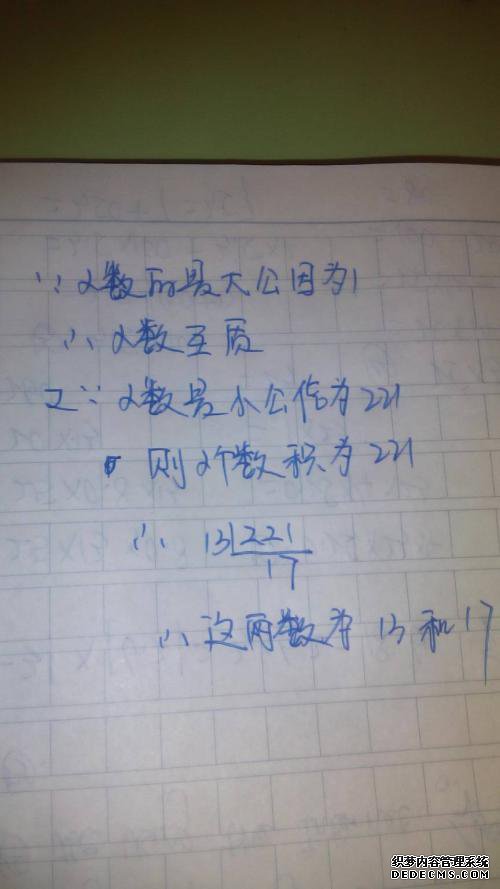 ∵ 2数的最大公因为1
∴ 2数互质
又∵ 2数最小公倍为221
则2个数积为221
∴ 13|221
17
∴ 这两数为 13 和 17
织梦内容管理系统
DEDECMS.COM